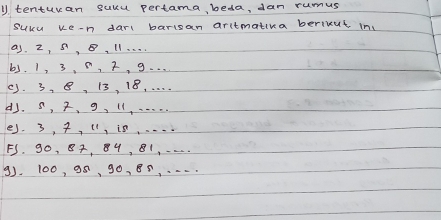 1) tentukan suku pertama, beda, dan rumus
suku ke-n dari barisan aritmatika berikut ini
a). 2, 5, 8, 11....
b). 1, 3, 5, 7, 9...
c). 3, 8, 13, 18,....
d). 5, 7, 9, 11,.....
e). 3, 7, 11, 15,.....
F). 90, 87, 84, 81,....
g). 100, 95, 90, 85,.....